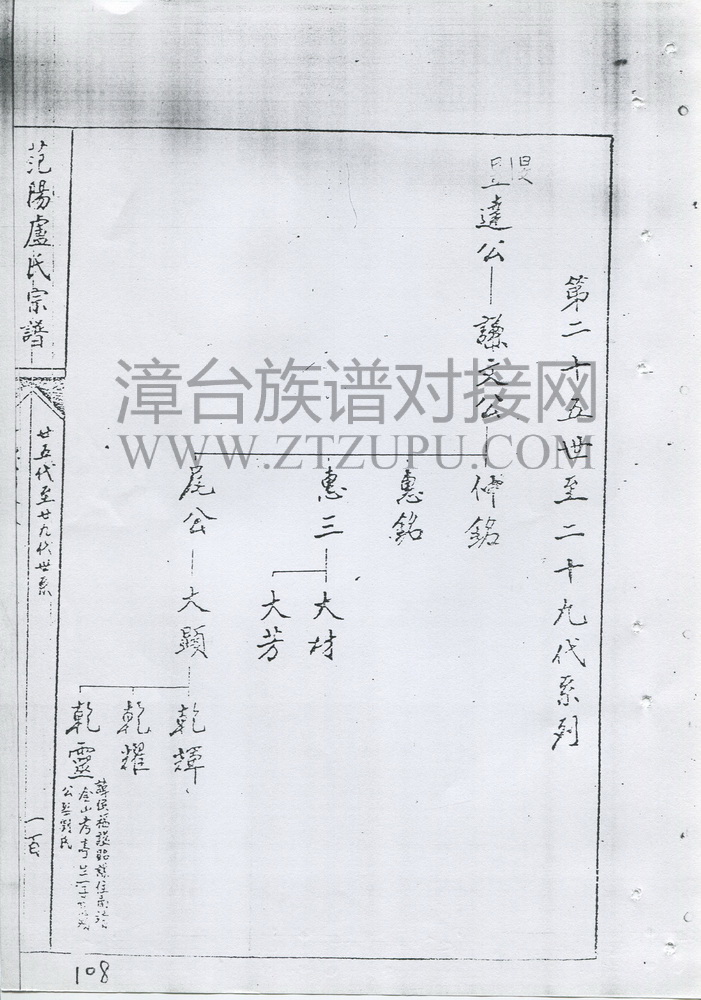 第二十五世至二十九代系列
達公
謙文公
仲銘
惠銘
惠三
尾公
大材
大芳
大顕
乾輝
乾耀
乾靈
范陽盧氏宗譜
廿五代至廿九代世系
一百
108
漳台族谱对接网
WWW.ZTZUPU.COM